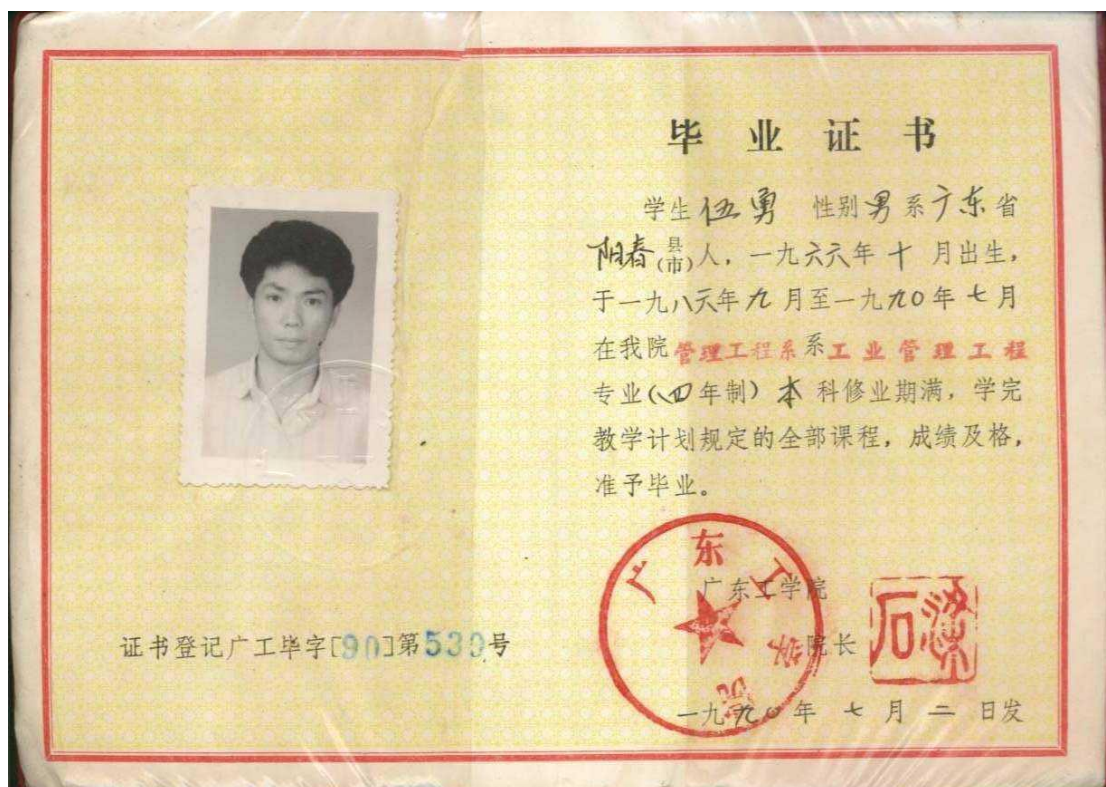 毕业证书
学生 伍勇 性别 男 系 广东 省
阳春 县(市)人，一九六六年 十 月出生，
于一九八六年 九 月至一九九0年 七 月
在我院 管理工程系 系 工业管理工程
专业（四年制）本 科修业期满，学完
教学计划规定的全部课程，成绩及格，
准予毕业。
广东工学院
广东工学院
院长
证书登记广工毕字[90]第539号
一九九〇年 七 月 二 日发